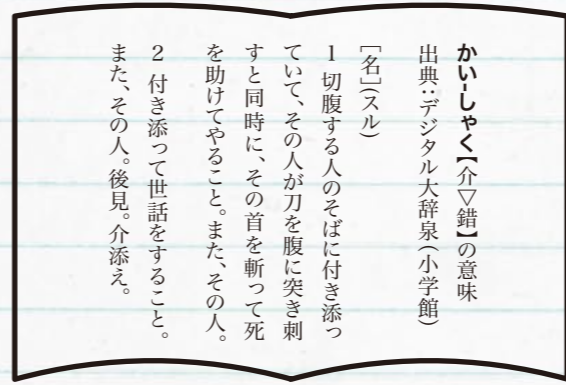 かい‐しゃく【介▽錯】の意味
出典:デジタル大辞泉(小学館)
[名](スル)
1 切腹する人のそばに付き添っ
ていて、その人が刀を腹に突き刺
すと同時に、その首を斬って死
を助けてやること。また、その人。
2 付き添って世話をすること。
また、その人。後見。介添え。